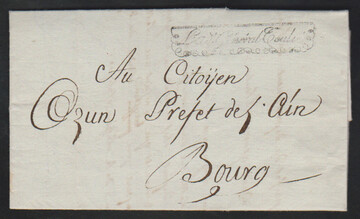 Au Citoÿen
Ozun Prefet de l'Ain
Bourg